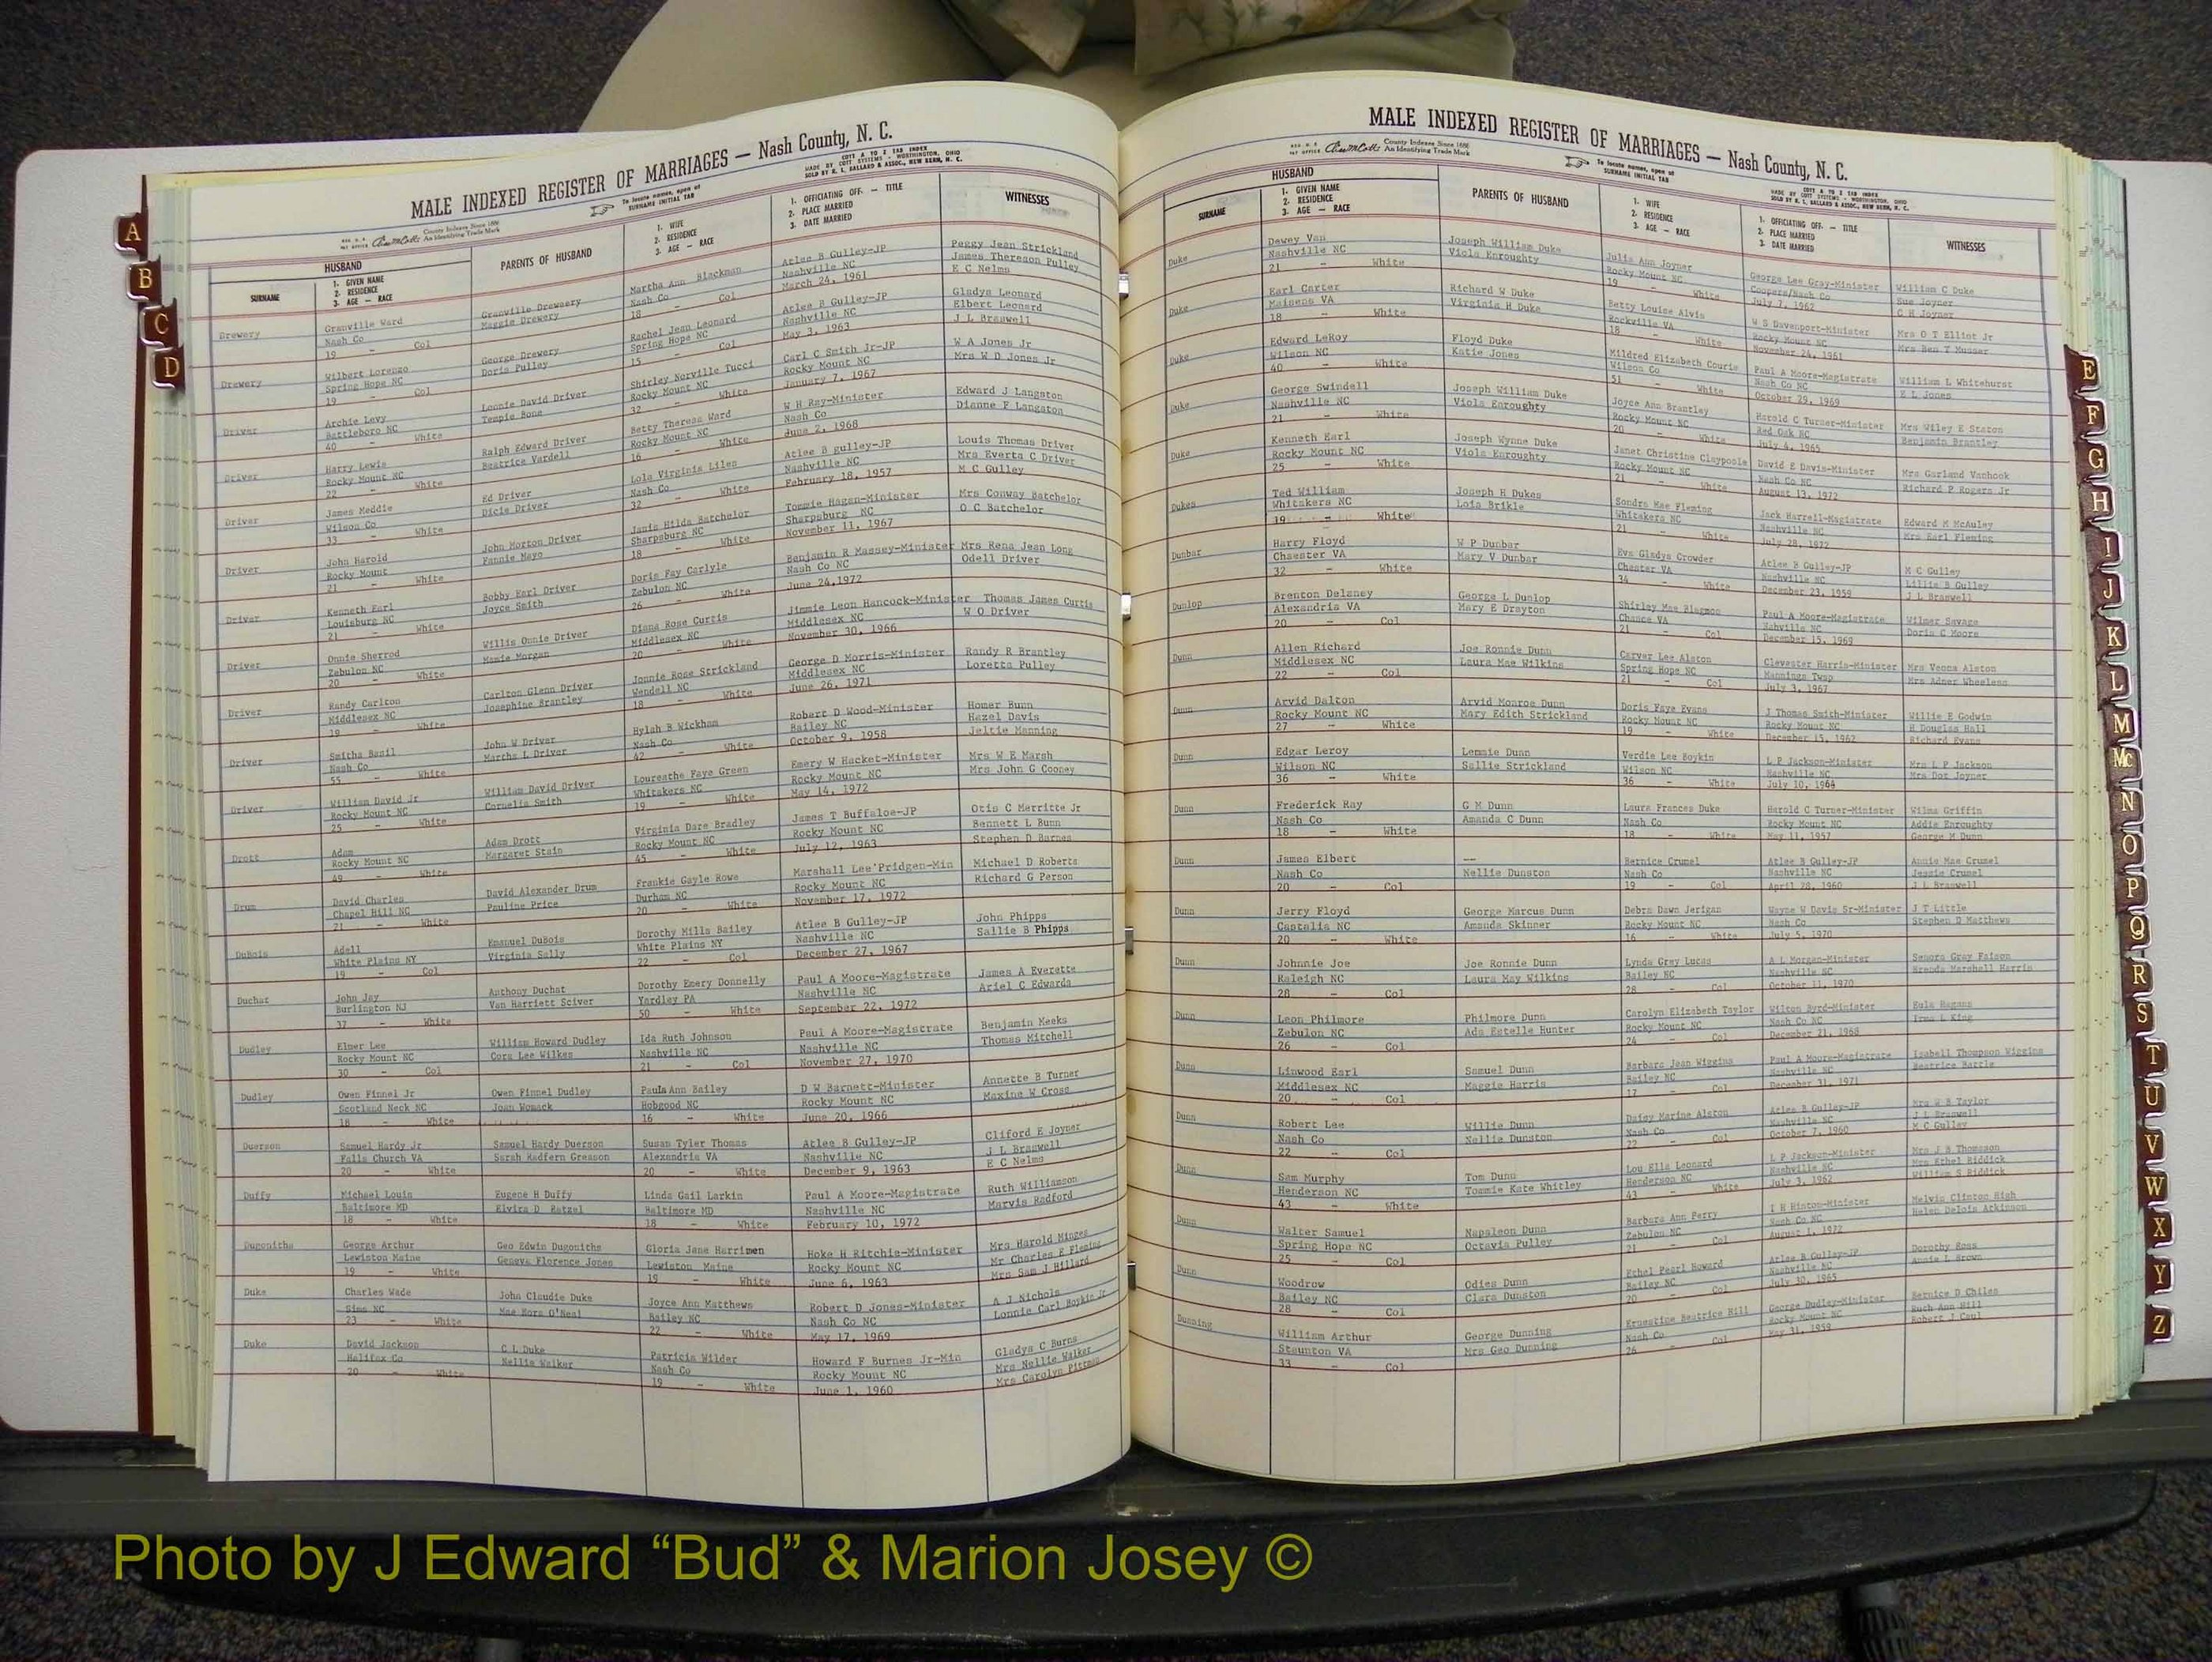 MALE INDEXED REGISTER OF MARRIAGES — Nash County, N. C.
County Indexes Since 1888
An Identifying Trade Mark
To locate names, open at
SURNAME INITIAL TAB
COTT A TO Z TAB INDEX
MADE BY COTT SYSTEMS - WORTHINGTON, OHIO
SOLD BY R. L. BALLARD & ASSOC., NEW BERN, N. C.
HUSBAND
SURNAME
1. GIVEN NAME
2. RESIDENCE
3. AGE — RACE
PARENTS OF HUSBAND
1. WIFE
2. RESIDENCE
3. AGE — RACE
1. OFFICIATING OFF. — TITLE
2. PLACE MARRIED
3. DATE MARRIED
WITNESSES
Drewery Granville Ward Granville Drewery Martha Ann Blackman Atlee B Gulley-JP Peggy Jean Strickland
Nash Co Maggie Drewery Nash Co Nashville NC James Thereson Pulley
19 - Col 18 - Col March 24, 1961 E C Nelms
Drewery Wilbert Lorenzo George Drewery Rachel Jean Leonard Atlee B Gulley-JP Gladys Leonard
Spring Hope NC Doris Pulley Spring Hope NC Nashville NC Elbert Leonard
19 - Col 15 - Col May 3, 1963 J L Braswell
Driver Archie Levy Lonnie David Driver Shirley Norville Tucci Carl C Smith Jr-JP W A Jones Jr
Battleboro NC Tempie Bone Rocky Mount NC Rocky Mount NC Mrs W D Jones Jr
40 - White 32 - White January 7, 1967
Driver Harry Lewis Ralph Edward Driver Betty Theresa Ward W H Ray-Minister Edward J Langston
Rocky Mount NC Beatrice Vardell Rocky Mount NC Nash Co Dianne F Langston
22 - White 16 - White June 2, 1968
Driver James Meddie Ed Driver Lola Virginia Liles Atlee B gulley-JP Louis Thomas Driver
Wilson Co Dicie Driver Nash Co Nashville NC Mrs Everta C Driver
33 - White 32 - White February 18, 1957 M C Gulley
Driver John Harold John Morton Driver Janis Hilda Batchelor Tommie Hagan-Minister Mrs Conway Batchelor
Rocky Mount Fannie Mayo Sharpsburg NC Sharpsburg NC O C Batchelor
21 - White 18 - White November 11, 1967
Driver Kenneth Earl Bobby Earl Driver Doris Fay Carlyle Benjamin R Massey-Minister Mrs Rena Jean Long
Louisburg NC Joyce Smith Zebulon NC Nash Co NC Odell Driver
21 - White 26 - White June 24,1972
Driver Onnie Sherrod Willis Onnie Driver Diana Rose Curtis Jimmie Leon Hancock-Minister Thomas James Curtis
Zebulon NC Mamie Morgan Middlesex NC Middlesex NC W O Driver
20 - White 20 - White November 30, 1966
Driver Randy Carlton Carlton Glenn Driver Jonnie Rose Strickland George D Morris-Minister Randy R Brantley
Middlesex NC Josephine Brantley Wendell NC Middlesex NC Loretta Pulley
19 - White 18 - White June 26, 1971
Driver Smitha Basil John W Driver Hylah B Wickham Robert D Wood-Minister Homer Bunn
Nash Co Martha L Driver Nash Co Bailey NC Hazel Davis
55 - White 42 - White October 9, 1958 Jeltie Manning
Driver William David Jr William David Driver Loureathe Faye Green Emery W Hacket-Minister Mrs W E Marsh
Rocky Mount NC Cornelia Smith Whitakers NC Rocky Mount NC Mrs John G Cooney
25 - White 19 - White May 14, 1972
Drott Adam Adam Drott Virginia Dare Bradley James T Buffaloe-JP Otis C Merritte Jr
Rocky Mount NC Margaret Stain Rocky Mount NC Rocky Mount NC Bennett L Bunn
49 - White 45 - White July 12, 1963 Stephen D Barnes
Drum David Charles David Alexander Drum Frankie Gayle Rowe Marshall Lee Pridgen-Min Michael D Roberts
Chapel Hill NC Pauline Price Durham NC Rocky Mount NC Richard G Person
21 - White 20 - White November 17, 1972
DuBois Adell Emanuel DuBois Dorothy Mills Bailey Atlee B Gulley-JP John Phipps
White Plains NY Virginia Sally White Plains NY Nashville NC Sallie B Phipps
19 - Col 22 - Col December 27, 1967
Duchat John Jay Anthony Duchat Dorothy Emery Donnelly Paul A Moore-Magistrate James A Everette
Burlington NJ Van Harriett Sciver Yardley PA Nashville NC Ariel C Edwards
37 - White 50 - White September 22, 1972
Dudley Elmer Lee William Howard Dudley Ida Ruth Johnson Paul A Moore-Magistrate Benjamin Meeks
Rocky Mount NC Cora Lee Wilkes Nashville NC Nashville NC Thomas Mitchell
30 - Col 21 - Col November 27, 1970
Dudley Owen Finnel Jr Owen Finnel Dudley Paula Ann Bailey D W Barnett-Minister Annette B Turner
Scotland Neck NC Joan Womack Hobgood NC Rocky Mount NC Maxine W Cross
18 - White 16 - White June 20, 1966
Duerson Samuel Hardy Jr Samuel Hardy Duerson Susan Tyler Thomas Atlee B Gulley-JP Cliford E Joyner
Falls Church VA Sarah Radfern Greason Alexandria VA Nashville NC J L Braswell
20 - White 20 - White December 9, 1963 E C Nelms
Duffy Michael Louis Eugene H Duffy Linda Gail Larkin Paul A Moore-Magistrate Ruth Williamson
Baltimore MD Elvira D Ratzel Baltimore MD Nashville NC Marvis Radford
18 - White 18 - White February 10, 1972
Dugoniths George Arthur Geo Edwin Dugoniths Gloria Jane Harrimen Hoke H Ritchie-Minister Mrs Harold Minges
Lewiston Maine Geneva Florence Jones Lewiston Maine Rocky Mount NC Mr Charles E Fleming
19 - White 19 - White June 6, 1963 Mrs Sam J Hillard
Duke Charles Wade John Claudie Duke Joyce Ann Matthews Robert D Jones-Minister A J Nichols
Sims NC Mae Kora O'Neal Bailey NC Nash Co NC Lonnie Carl Boykin Jr
23 - White 22 - White May 17, 1969
Duke David Jackson C L Duke Patricia Wilder Howard F Burnes Jr-Min Gladys C Burns
Halifax Co Nellie Walker Nash Co Rocky Mount NC Mrs Nellie Walker
20 - White 19 - White June 1, 1960 Mrs Carolyn Pittman
MALE INDEXED REGISTER OF MARRIAGES — Nash County, N. C.
County Indexes Since 1888
An Identifying Trade Mark
To locate names, open at
SURNAME INITIAL TAB
COTT A TO Z TAB INDEX
MADE BY COTT SYSTEMS - WORTHINGTON, OHIO
SOLD BY R. L. BALLARD & ASSOC., NEW BERN, N. C.
HUSBAND
SURNAME
1. GIVEN NAME
2. RESIDENCE
3. AGE — RACE
PARENTS OF HUSBAND
1. WIFE
2. RESIDENCE
3. AGE — RACE
1. OFFICIATING OFF. — TITLE
2. PLACE MARRIED
3. DATE MARRIED
WITNESSES
Duke Dewey Van Joseph William Duke Julia Ann Joyner George Lee Gray-Minister William C Duke
Nashville NC Viola Enroughty Rocky Mount NC Coopers/Nash Co Sue Joyner
21 - White 19 - White July 7, 1962 C H Joyner
Duke Earl Carter Richard W Duke Betty Louise Alvis W S Davenport-Minister Mrs O T Elliot Jr
Maisens VA Virginia H Duke Rockville VA Rocky Mount NC Mrs Ben T Musser
18 - White 18 - White November 24, 1961
Duke Edward LeRoy Floyd Duke Mildred Elizabeth Courie Paul A Moore-Magistrate William L Whitehurst
Wilson NC Katie Jones Wilson Co Nash Co NC E L Jones
40 - White 51 - White October 29, 1969
Duke George Swindell Joseph William Duke Joyce Ann Brantley Harold C Turner-Minister Mrs Wiley E Staton
Nashville NC Viola Enroughty Rocky Mount NC Red Oak NC Benjamin Brantley
21 - White 20 - White July 4, 1965
Duke Kenneth Earl Joseph Wynne Duke Janet Christine Claypoole David E Davis-Minister Mrs Garland Vanhook
Rocky Mount NC Viola Enroughty Rocky Mount NC Nash Co NC Richard P Rogers Jr
25 - White 21 - White August 13, 1972
Dukes Ted William Joseph H Dukes Sondra Mae Fleming Jack Harrell-Magistrate Edward M McAuley
Whitakers NC Lois Brikle Whitakers NC Nashville NC Mrs Earl Fleming
19 - White 21 - White July 28, 1972
Dunbar Harry Floyd W P Dunbar Eva Gladys Crowder Atlee B Gulley-JP M C Gulley
Chaester VA Mary V Dunbar Chester VA Nashville NC Lillie B Gulley
32 - White 34 - White December 23, 1959 J L Braswell
Dunlop Brenton Delaney George L Dunlop Shirley Mae Blagmon Paul A Moore-Magistrate Wilmer Savage
Alexandria VA Mary E Drayton Chance VA Nahville NC Doris C Moore
20 - Col 21 - Col December 15, 1969
Dunn Allen Richard Joe Ronnie Dunn Carver Lee Alston Clevester Harris-Minister Mrs Veona Alston
Middlesex NC Laura Mae Wilkins Spring Hope NC Mannings Twsp Mrs Adner Wheeless
22 - Col 21 - Col July 3, 1967
Dunn Arvid Dalton Arvid Monroe Dunn Doris Faye Evans J Thomas Smith-Minister Willie E Godwin
Rocky Mount NC Mary Edith Strickland Rocky Mount NC Rocky Mount NC H Douglas Hall
27 - White 19 - White December 15, 1962 Richard Evans
Dunn Edgar Leroy Lemmie Dunn Verdie Lee Boykin L P Jackson-Minister Mrs L P Jackson
Wilson NC Sallie Strickland Wilson NC Nashville NC Mrs Dot Joyner
36 - White 36 - White July 10, 1964
Dunn Frederick Ray G M Dunn Laura Frances Duke Harold C Turner-Minister Wilma Griffin
Nash Co Amanda C Dunn Nash Co Rocky Mount NC Addie Enroughty
18 - White 18 - White May 11, 1957 George M Dunn
Dunn James Elbert -- Bernice Crumel Atlee B Gulley-JP Annie Mae Crumel
Nash Co Nellie Dunston Nash Co Nashville NC Jessie Crumel
20 - Col 19 - Col April 28, 1960 J L Braswell
Dunn Jerry Floyd George Marcus Dunn Debra Dawn Jerigan Wayne W Davis Sr-Minister J T Little
Castalia NC Amanda Skinner Rocky Mount NC Nash Co Stephen D Matthews
20 - White 16 - White July 5, 1970
Dunn Johnnie Joe Joe Ronnie Dunn Lynda Gray Lucas A L Morgan-Minister Senora Gray Faison
Raleigh NC Laura May Wilkins Bailey NC Nashville NC Brenda Marshall Harris
28 - Col 28 - Col October 11, 1970
Dunn Leon Philmore Philmore Dunn Carolyn Elizabeth Taylor Wilton Byrd-Minister Eula Hagans
Zebulon NC Ada Estelle Hunter Rocky Mount NC Nash Co NC Irma L King
26 - Col 24 - Col December 21, 1968
Dunn Linwood Earl Samuel Dunn Barbara Jean Wiggins Paul A Moore-Magistrate Isabell Thompson Wiggins
Middlesex NC Maggie Harris Bailey NC Nashville NC Beatrice Battle
20 - Col 17 - Col December 31, 1971
Dunn Robert Lee Willie Dunn Daisy Marine Alston Atlee B Gulley-JP Mrs W B Taylor
Nash Co Nellie Dunston Nash Co Nashville NC J L Braswell
22 - Col 22 - Col October 7, 1960 M C Gulley
Dunn Sam Murphy Tom Dunn Lou Ella Leonard L P Jackson-Minister Mrs J B Thompson
Henderson NC Tommie Kate Whitley Henderson NC Nashville NC Mrs Ethel Riddick
43 - White 43 - White July 3, 1962 William S Riddick
Dunn Walter Samuel Napaleon Dunn Barbara Ann Perry I H Hinton-Minister Melvin Clinton High
Spring Hope NC Octavia Pulley Zebulon NC Nash Co NC Helen Delois Atkinson
25 - Col 21 - Col August 1, 1972
Dunn Woodrow Odies Dunn Ethel Pearl Howard Atlee B Gulley-JP Dorothy Ross
Bailey NC Clara Dunston Bailey NC Nashville NC Annie L Brown
28 - Col 20 - Col July 30, 1965
Dunning William Arthur George Dunning Ernestine Beatrice Hill George Dudley-Minister Bernice D Chiles
Staunton VA Mrs Geo Dunning Nash Co Rocky Mount NC Ruth Ann Hill
33 - Col 26 - Col May 31, 1959 Robert J Caul
A
B
C
D
E
F
G
H
I
J
K
L
M
Mc
N
O
P
Q
R
S
T
U
V
W
X
Y
Z
Photo by J Edward “Bud” & Marion Josey ©